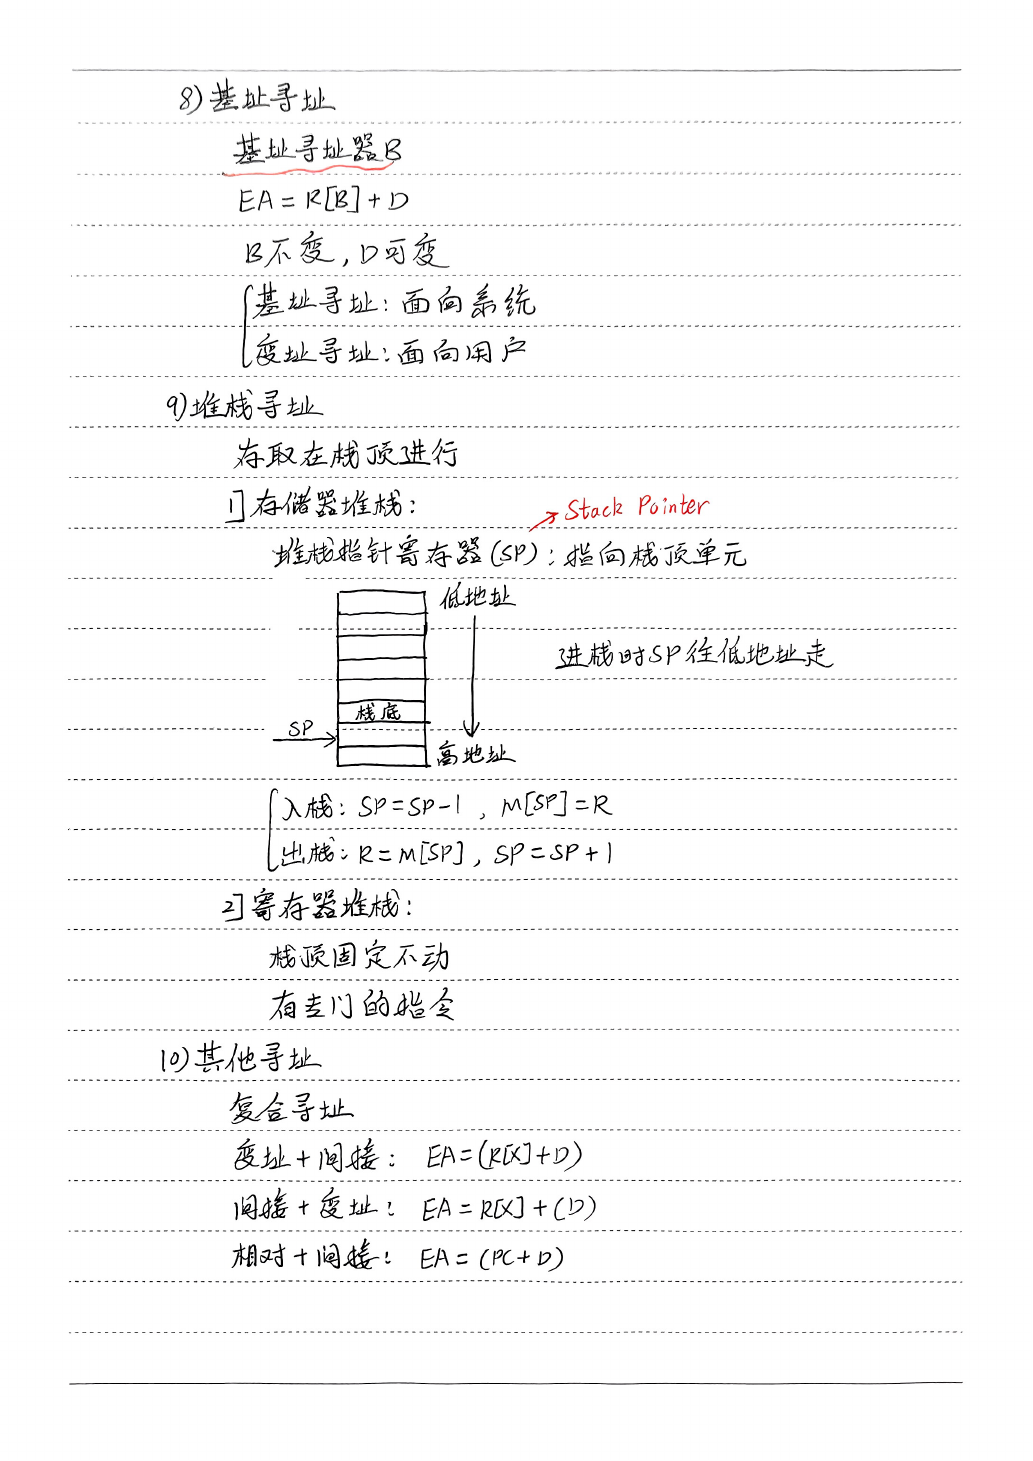 8)基址寻址
基址寻址器B
EA=R[B]+D
B不变,D可变
基址寻址:面向系统
变址寻址:面向用户
9)堆栈寻址
存取在栈顶进行
1]存储器堆栈:
Stack Pointer
堆栈指针寄存器(SP):指向栈顶单元
低地址
进栈时SP往低地址走
栈底
SP
高地址
入栈:SP=SP-1,M[SP]=R
出栈:R=M[SP],SP=SP+1
2]寄存器堆栈:
栈顶固定不动
有专门的指令
10)其他寻址
复合寻址
变址+间接:EA=(R[X]+D)
间接+变址:EA=R[X]+(D)
相对+间接:EA=(PC+D)